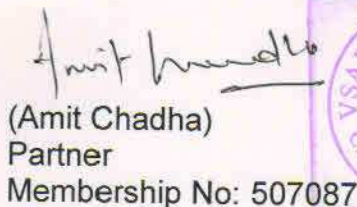 Amit Chadha
(Amit Chadha)
Partner
Membership No: 507087
VSA